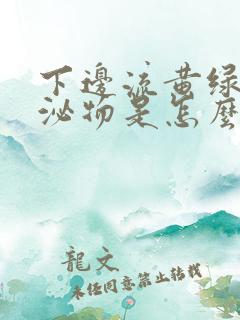 下邊流黄绿
泌物是怎麽
龍文
未任同意禁止转载